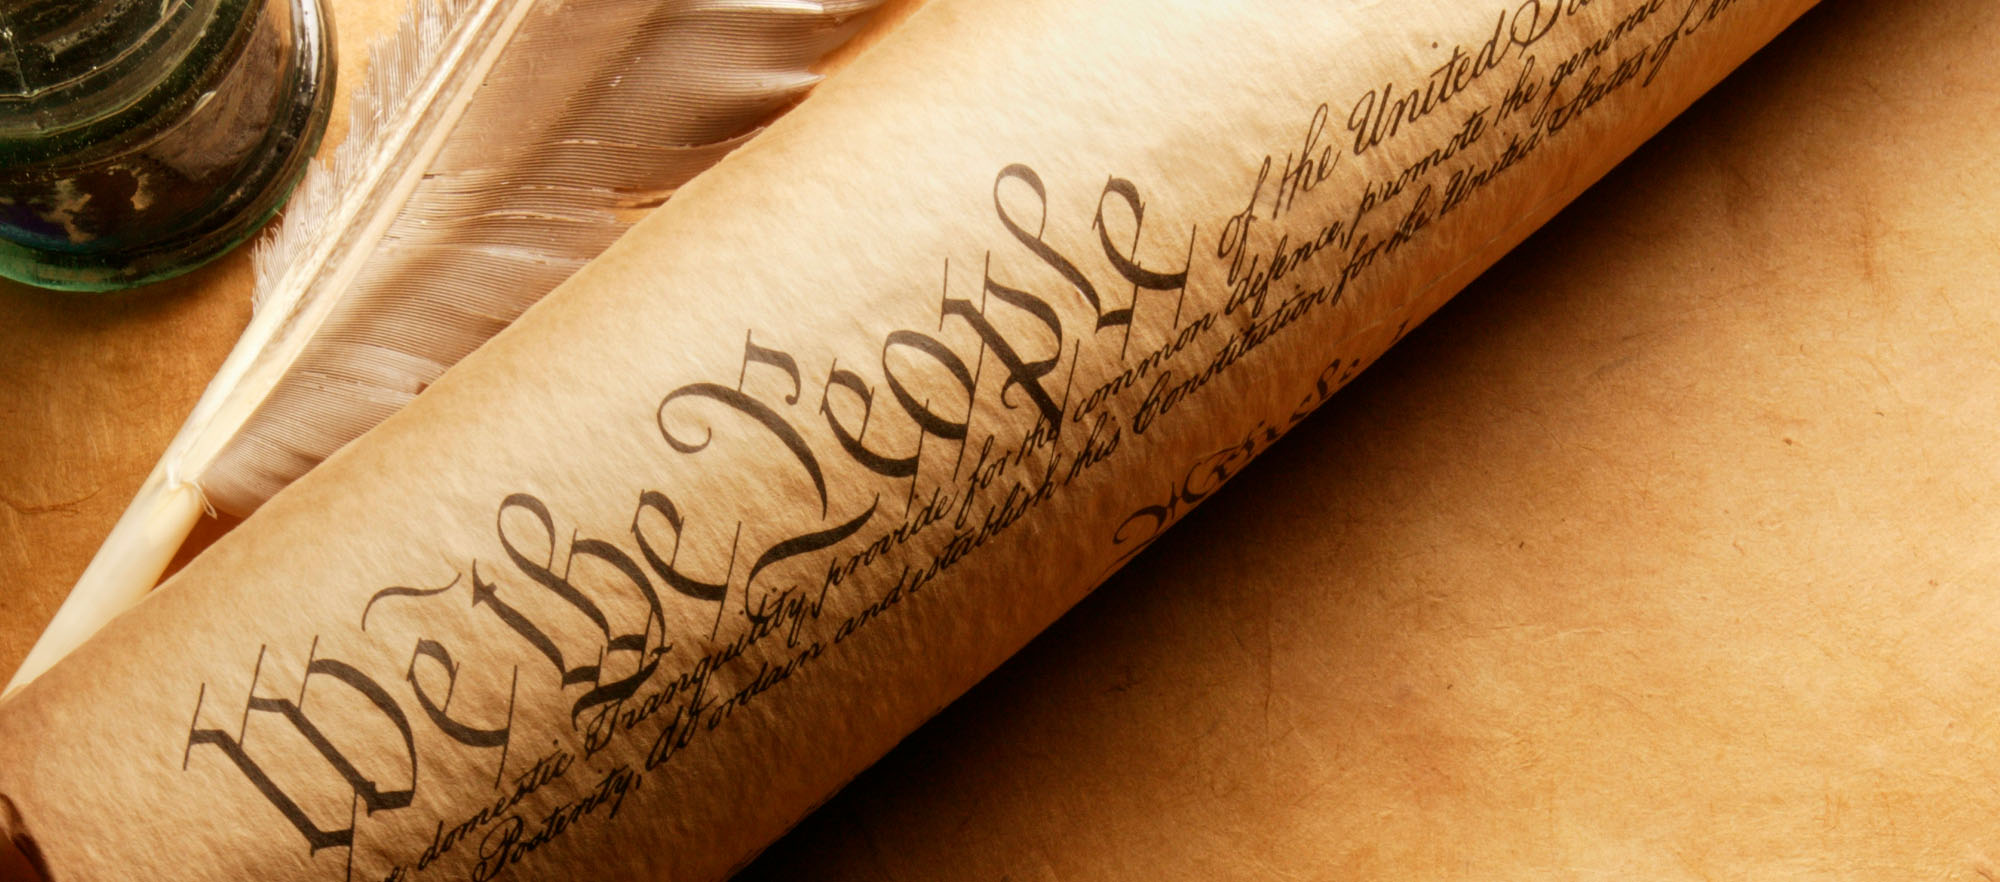 We the People of the United
domestic Tranquility, provide for the common defence, promote the general
Posterity, do ordain and establish this Constitution for the United States of